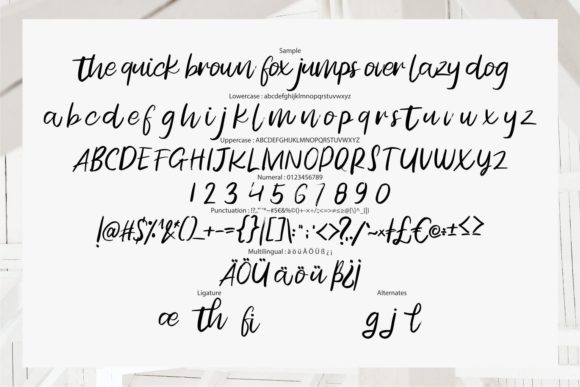 Sample
the quick brown fox jumps over lazy dog
Lowercase : abcdefghijklmnopqrstuvwxyz
a b c d e f g h i j k l m n o p q r s t u v w x y z
Uppercase : ABCDEFGHIJKLMNOPQRSTUVWXYZ
ABCDEFGHIJKLMNOPQRSTUVWXYZ
Numeral : 0123456789
1 2 3 4 5 6 7 8 9 0
!@#$%^&*()_+-={}|[]\:";'<>?,./~×±£€@±≤≥
Multilingual : ä ö ü Ä Ö Ü ß ¿ ¡
ÄÖÜ äöü ß¿¡
Ligature Alternates
æ th fi g j t